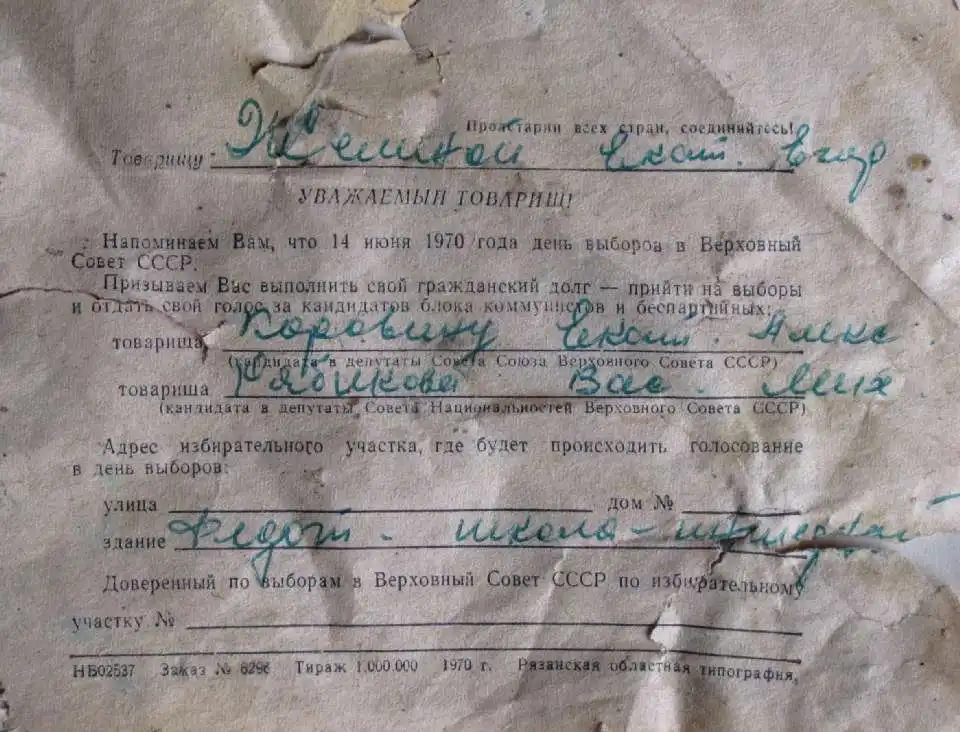 Пролетарии всех стран, соединяйтесь!
Товарищу: Жёлиной Екат. Егор
УВАЖАЕМЫЙ ТОВАРИЩ!
Напоминаем Вам, что 14 июня 1970 года день выборов в Верховный
Совет СССР.
Призываем Вас выполнить свой гражданский долг — прийти на выборы
и отдать свой голос за кандидатов блока коммунистов и беспартийных:
товарища Коровину Екат. Алекс.
(кандидата в депутаты Совета Союза Верховного Совета СССР)
товарища Рябикова Вас. Мих
(кандидата в депутаты Совета Национальностей Верховного Совета СССР)
Адрес избирательного участка, где будет происходить голосование
в день выборов:
улица дом №
здание Федот - школа-интернат
Доверенный по выборам в Верховный Совет СССР по избирательному
участку №
НБ02537 Заказ № 6296 Тираж 1.000.000 1970 г. Рязанская областная типография,